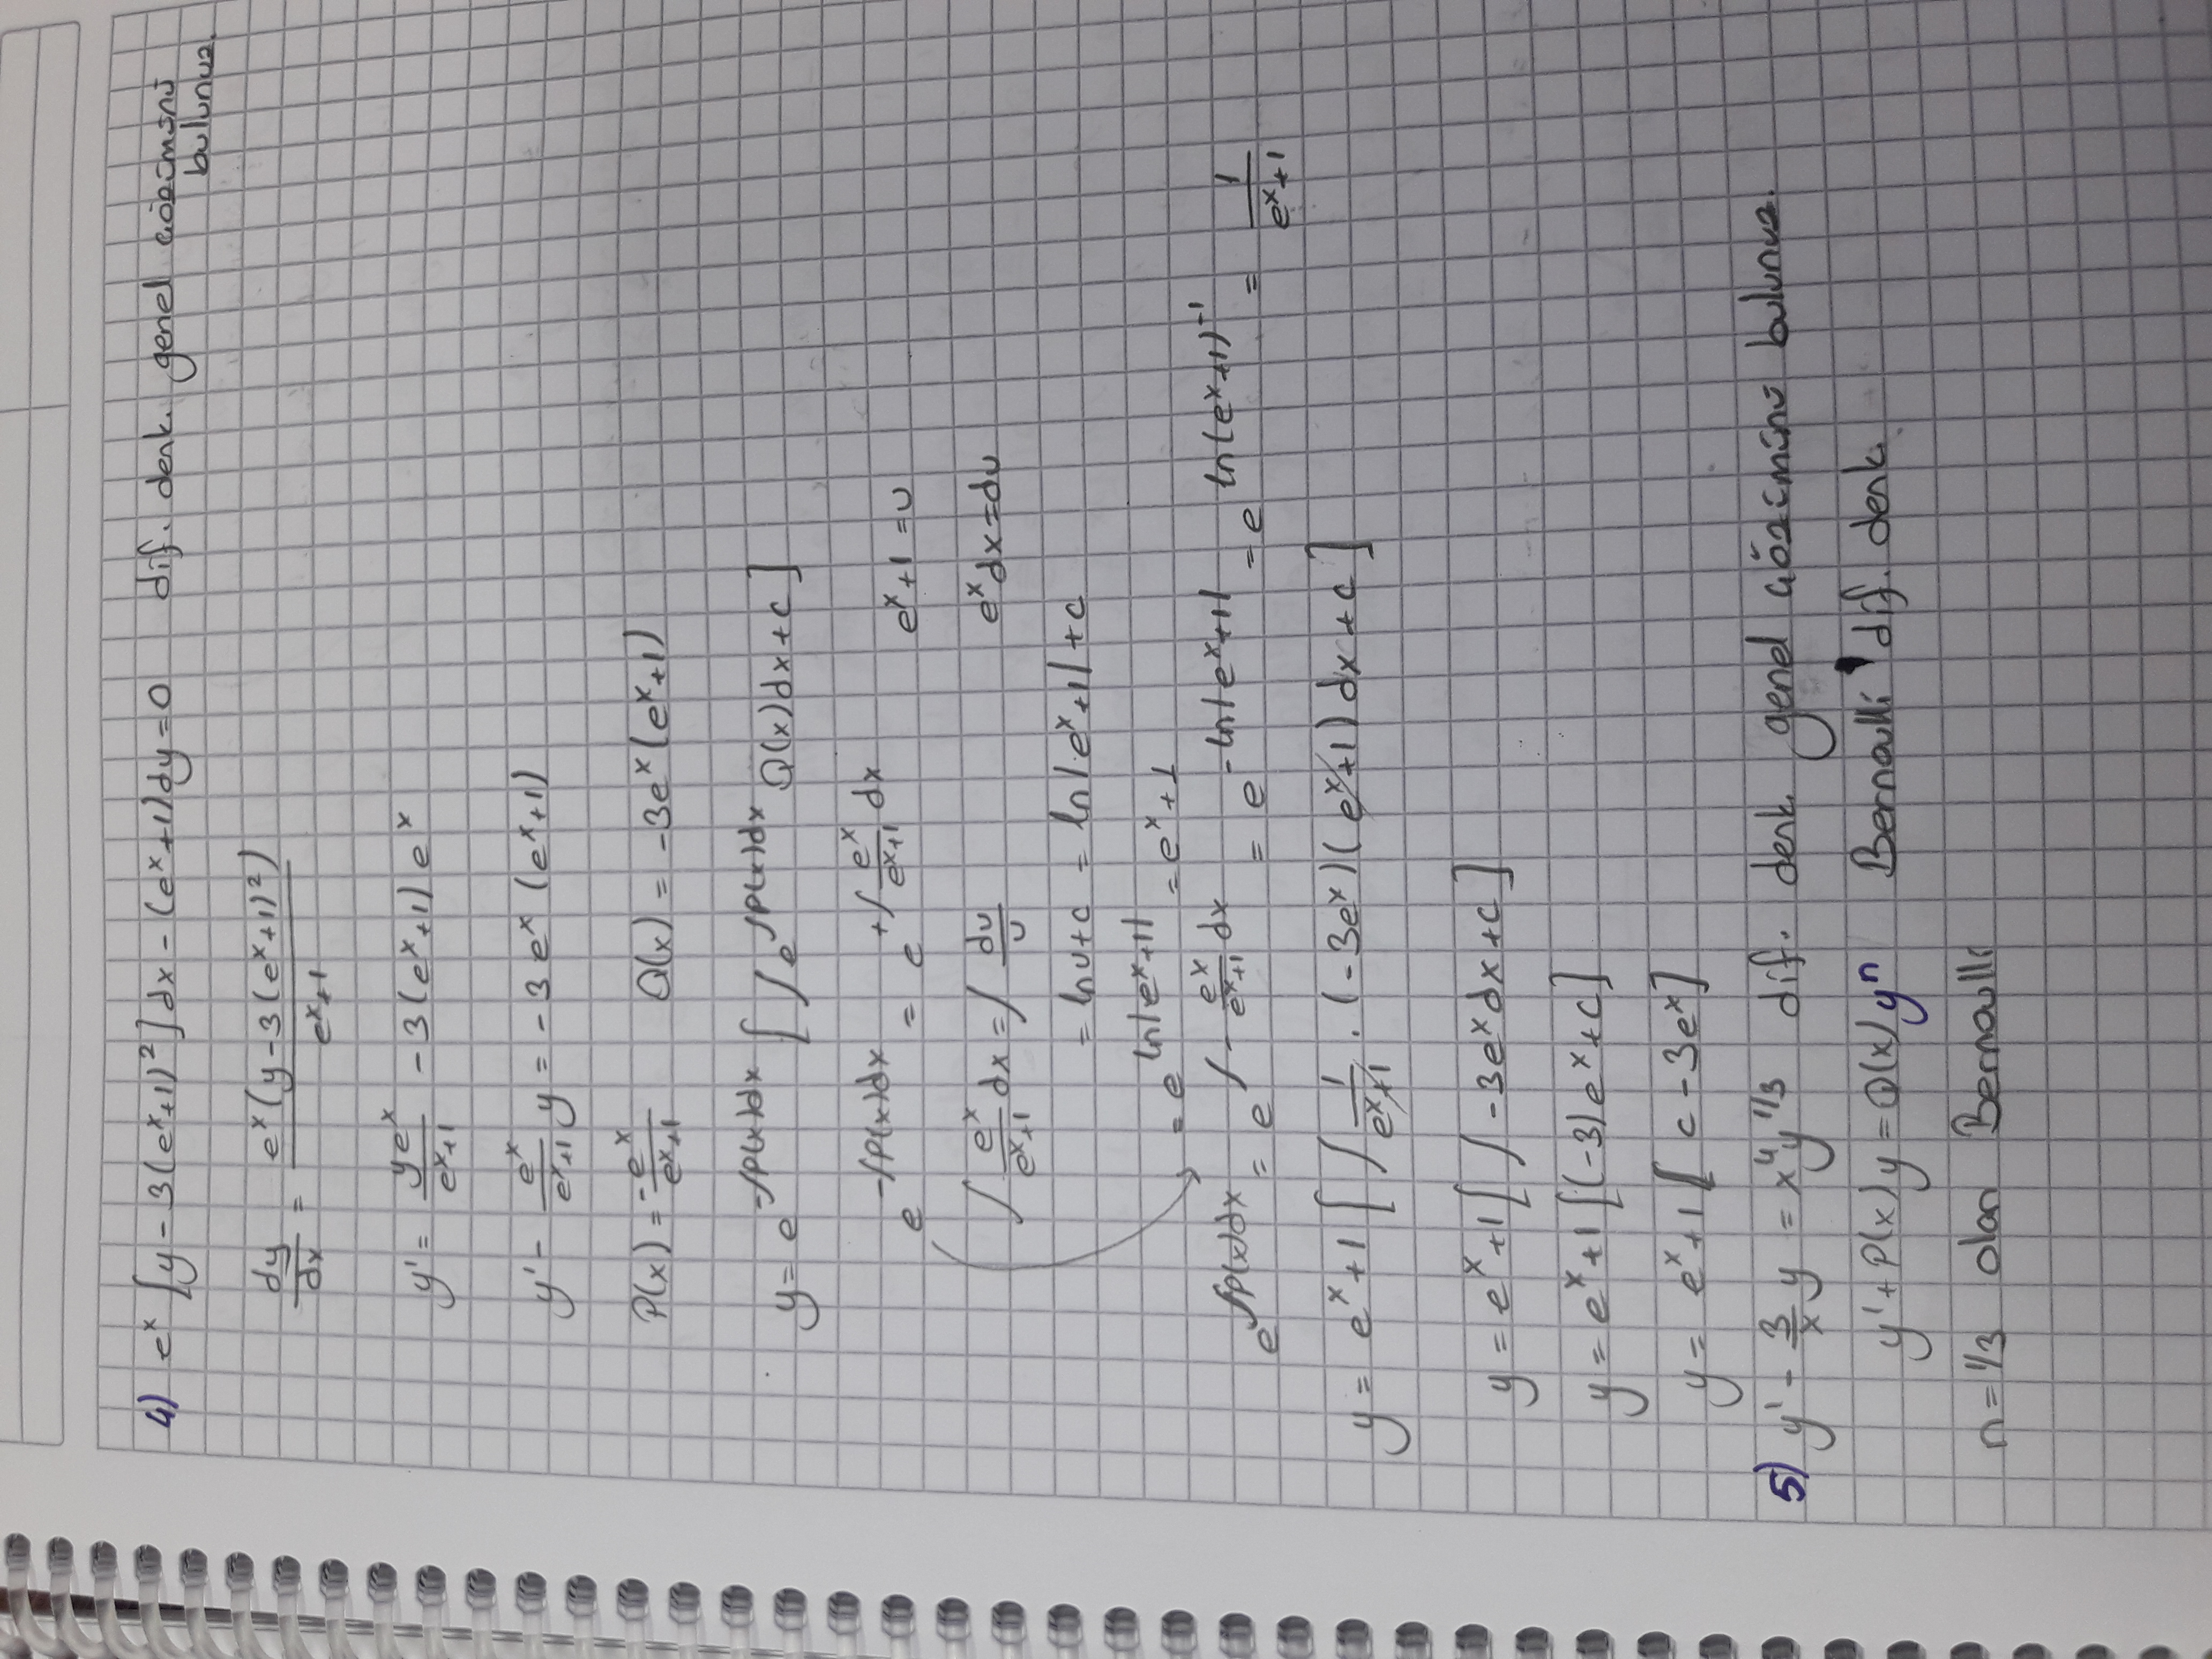 4) eˣ [y - 3(eˣ+1)²]dx - (eˣ+1)dy = 0 dif. denk. genel çözümünü
bulunuz.
dy/dx = eˣ(y - 3(eˣ+1)²) / eˣ+1
y' = yeˣ/eˣ+1 - 3(eˣ+1) eˣ
y' - eˣ/eˣ+1 y = -3 eˣ (eˣ+1)
P(x) = -eˣ/eˣ+1 Q(x) = -3eˣ(eˣ+1)
y = e^(-∫P(x)dx) [ ∫ e^(∫P(x)dx) Q(x)dx + c ]
e^(-∫P(x)dx) = e^(+∫ eˣ/eˣ+1 dx) eˣ+1 = u
∫ eˣ/eˣ+1 dx = ∫ du/u eˣdx = du
= ln u + c = ln|eˣ+1| + c
= e^(ln|eˣ+1|) = eˣ+1
e^(∫P(x)dx) = e^(∫ - eˣ/eˣ+1 dx) = e^(-ln|eˣ+1|) = e^(ln(eˣ+1)⁻¹) = 1/eˣ+1
y = eˣ+1 [ ∫ 1/eˣ+1 . (-3eˣ)(eˣ+1) dx + c ]
y = eˣ+1 [ ∫ -3eˣdx + c ]
y = eˣ+1 [(-3)eˣ + c]
y = eˣ+1 [ c - 3eˣ]
5) y' - 3/x y = x⁴y^(1/3) dif. denk. genel çözümünü bulunuz.
y' + P(x)y = Q(x)yⁿ Bernoulli dif. denk.
n = 1/3 olan Bernoulli